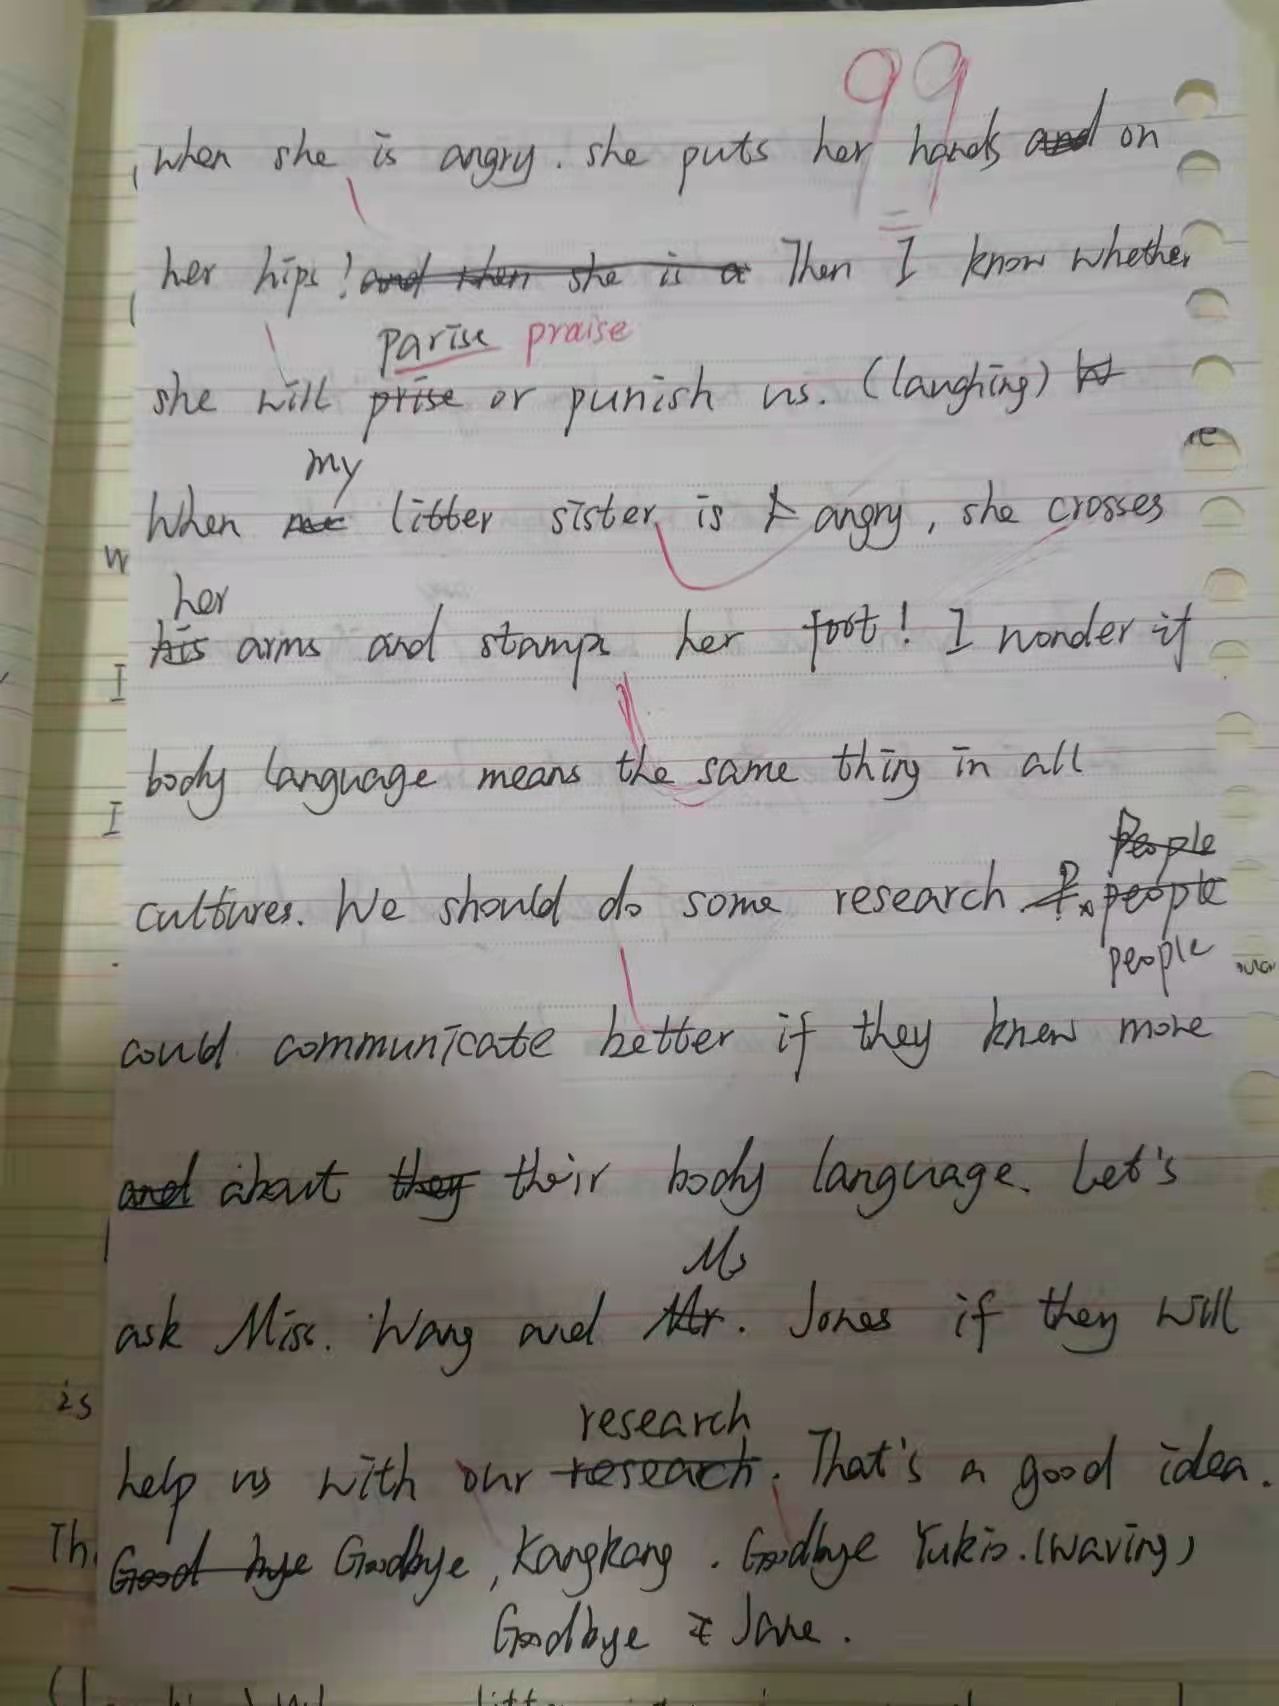 99
when she is angry. she puts her hands and on
her hips! and then she is a Then I know whether
parise praise
she will prise or punish us. (laughing) W
my
When me litter sister is angry, she crosses
her
his arms and stamps her foot! I wonder if
body language means the same thing in all
People
cultures. We should do some research. P. people
people
could communicate better if they knew more
and about they their body language. Let's
Ms
ask Miss. Wang and Mr. Jones if they will
research
help us with our research. That's a good idea.
Good bye Goodbye, Kangkang. Goodbye Yukio. (waving)
Goodbye Jane.
W
I
I
is
Th
re